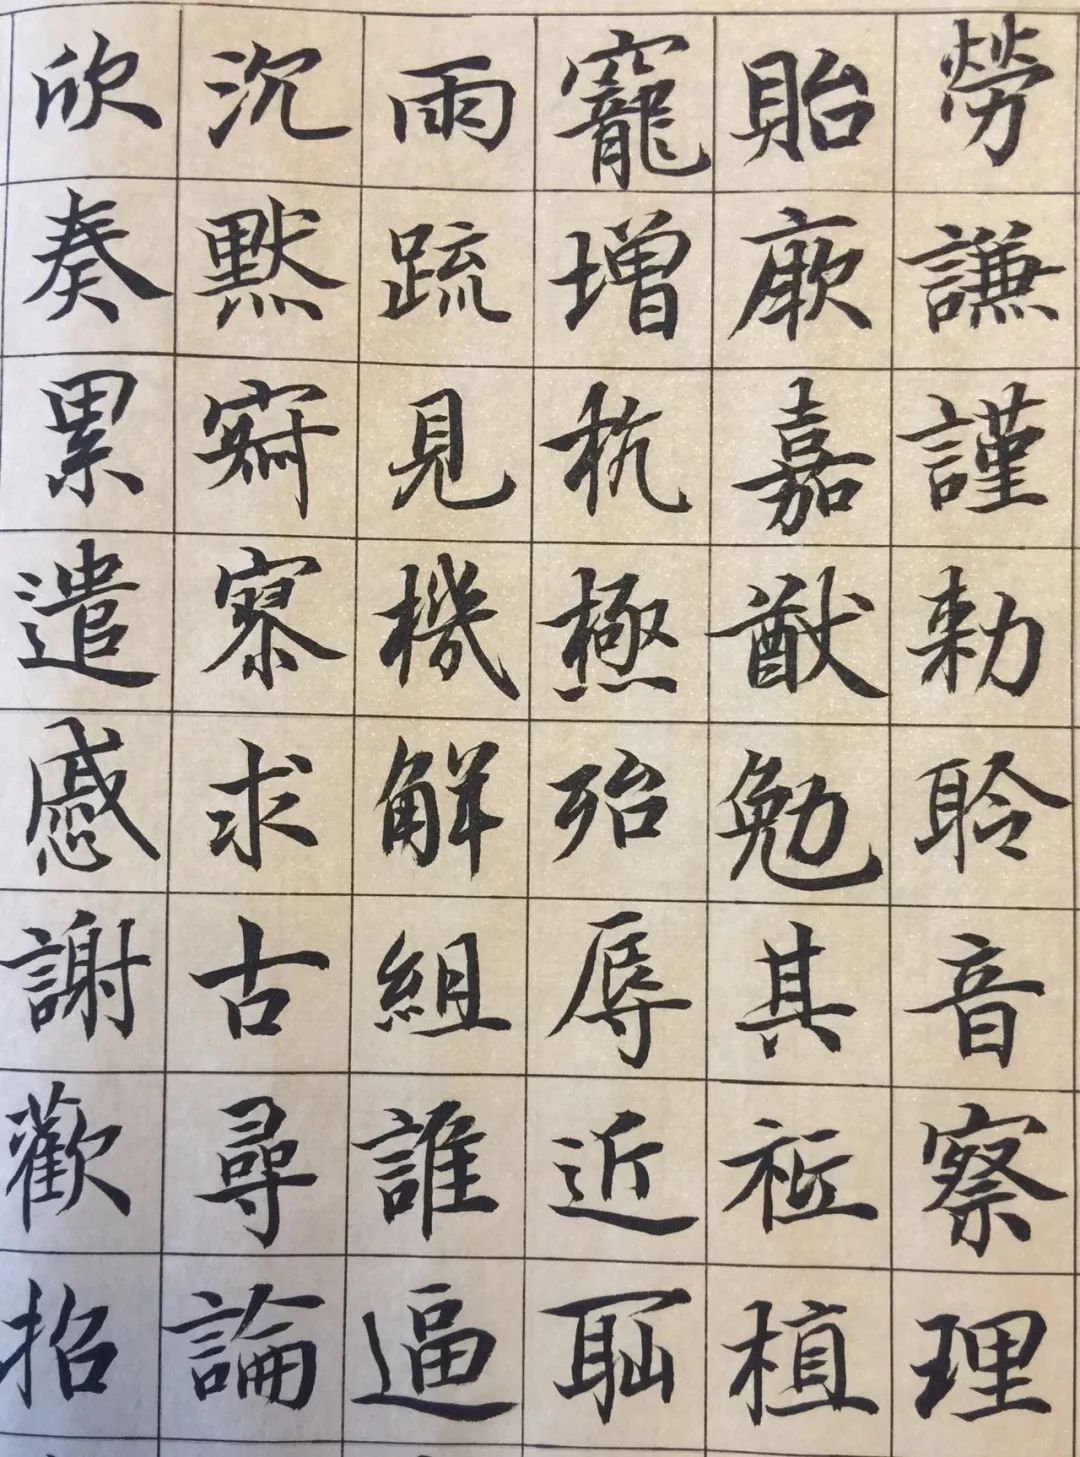 勞謙謹勅聆音察理
貽厥嘉猷勉其祗植
寵增抗極殆辱近耻
兩疏見機解組誰逼
沉默寂寥求古尋論
欣奏累遣慼謝歡招